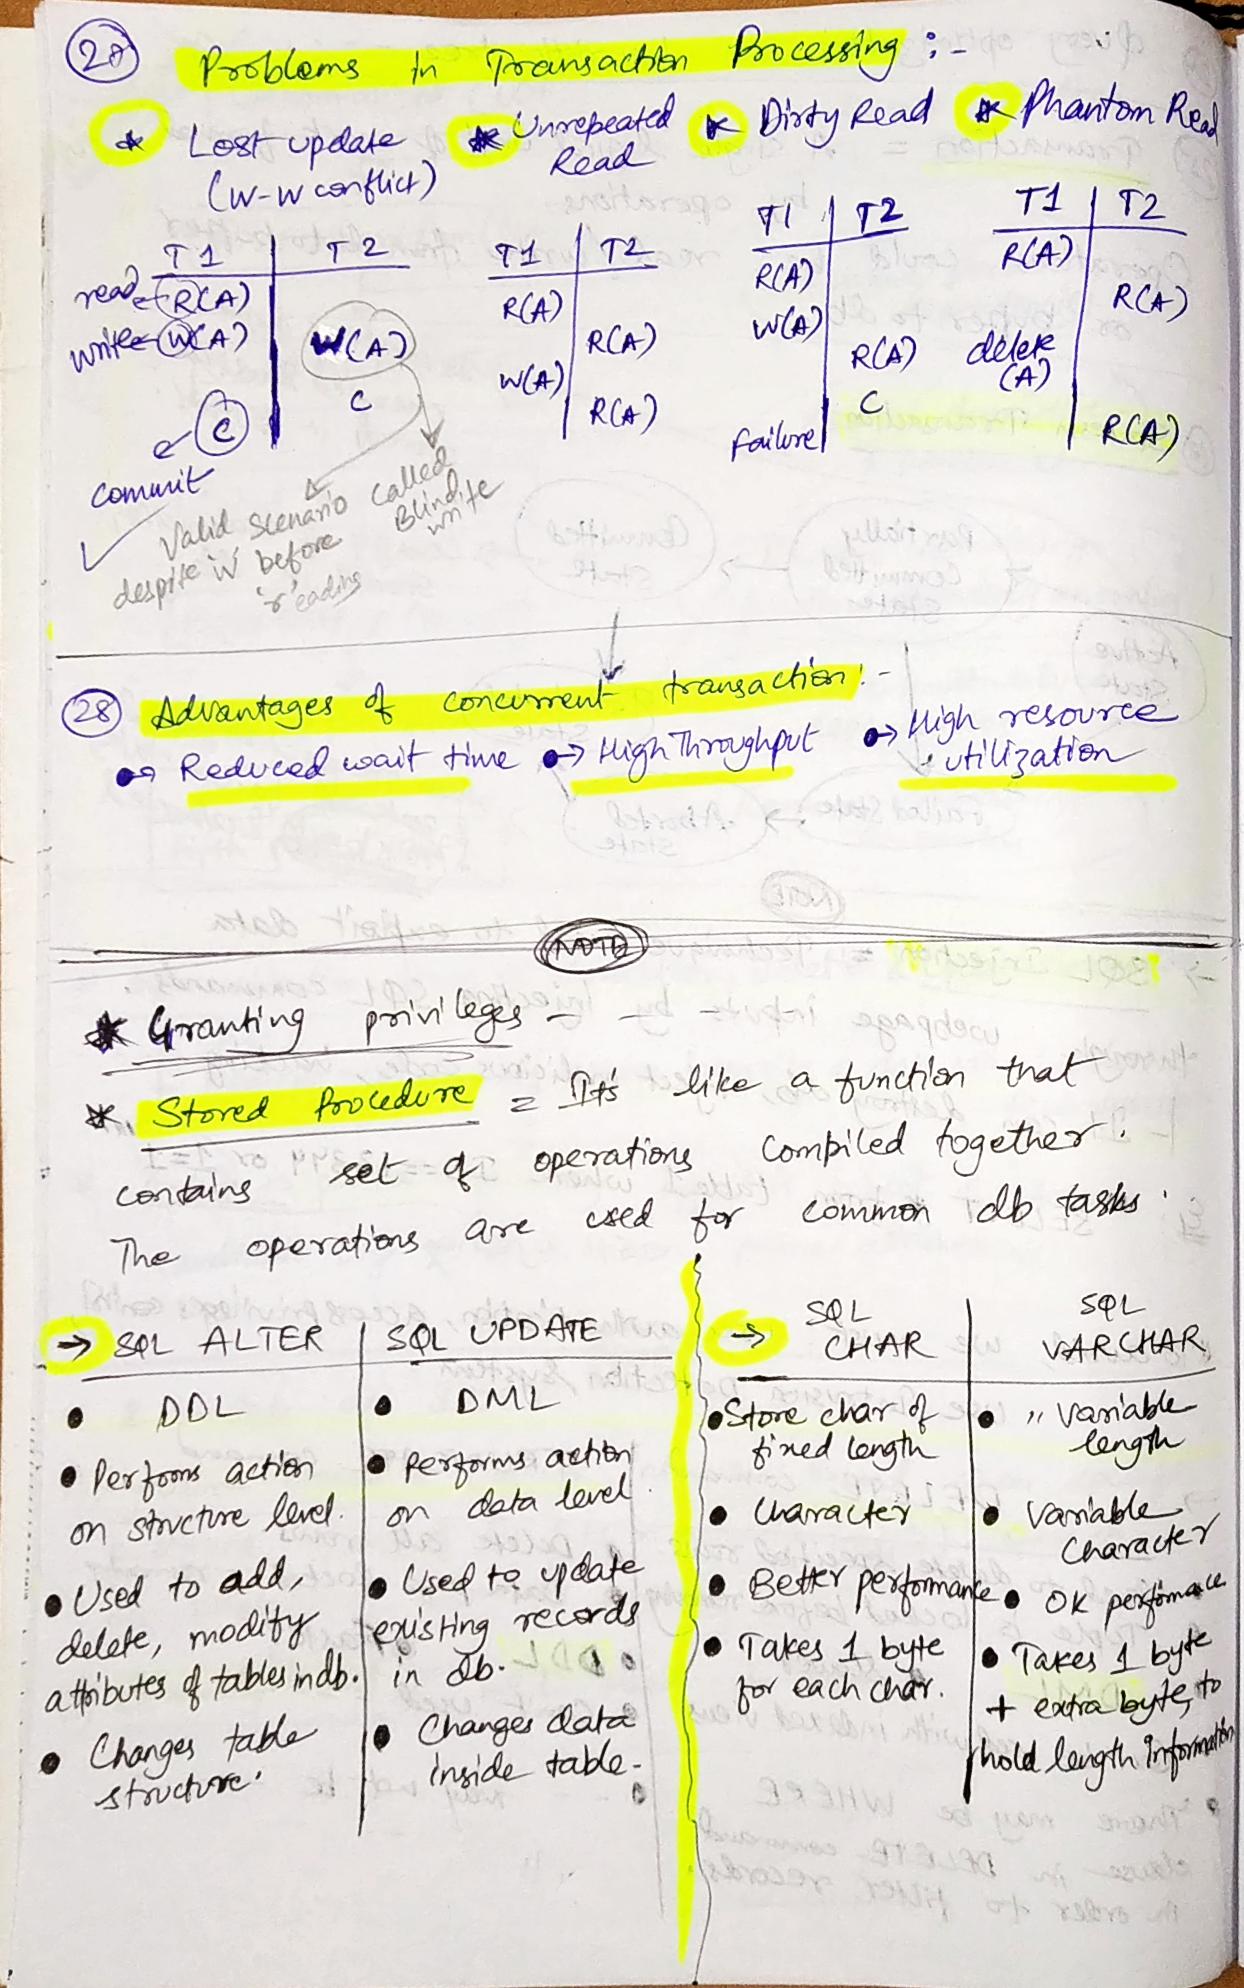 Problems in Transaction Processing :-
* Lost update
(W-W conflict)
* Unrepeated
Read
* Dirty Read
* Phantom Read
T1 | T2
read ← R(A)
write ← W(A)
W(A)
C
C
commit
Valid Scenario
despite 'w' before
'r'eading
called
write
T1 | T2
R(A)
R(A)
W(A)
R(A)
T1 | T2
R(A)
W(A)
R(A)
C
Failure
T1 | T2
R(A)
R(A)
delete
(A)
R(A)
28 Advantages of concurrent transaction:-
→ Reduced wait time → High Throughput → High resource
utilization
NOTE
* Granting privileges - - -
* Stored Procedure = It's like a function that
contains set of operations compiled together.
The operations are used for common db tasks.
→ SQL ALTER | SQL UPDATE
• DDL
• DML
• Performs action
on structure level.
• Performs action
on data level.
• Used to add,
delete, modify
attributes of tables in db.
• Used to update
existing records
in db.
• Changes table
structure.
• Changes data
inside table.
→ SQL
CHAR
SQL
VARCHAR
• Store char of
fixed length
• " Variable
length
• Character
• Variable
Character
• Better performance
• OK perfimance
• Takes 1 byte
for each char.
• Takes 1 byte
+ extra byte, to
hold length information